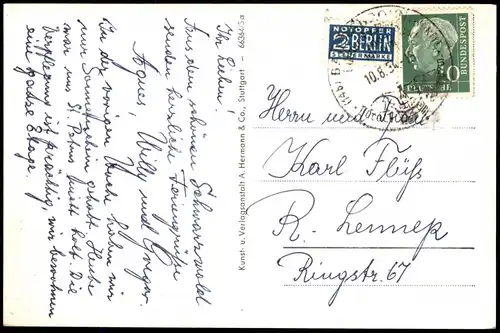 Ihr Lieben!
Aus dem schönen Schwarzwald
senden herzliche Feriengrüße
Agnes, Willy und Gregor.
In der vorigen Woche haben wir
nur Sonnenschein gehabt. Heute
war uns St. Petrus nicht hold. Die
Verpflegung ist prächtig, wir bewohnen
eine ganze Etage.
Kunst- u. Verlagsanstalt A. Hermann & Co., Stuttgart
NOTOPFER
2 BERLIN
STEUERMARKE
DEUTSCHE
BUNDESPOST
10
10.8.54
Herrn und Frau
Karl Flüß
R. Lennep
Ringstr. 67